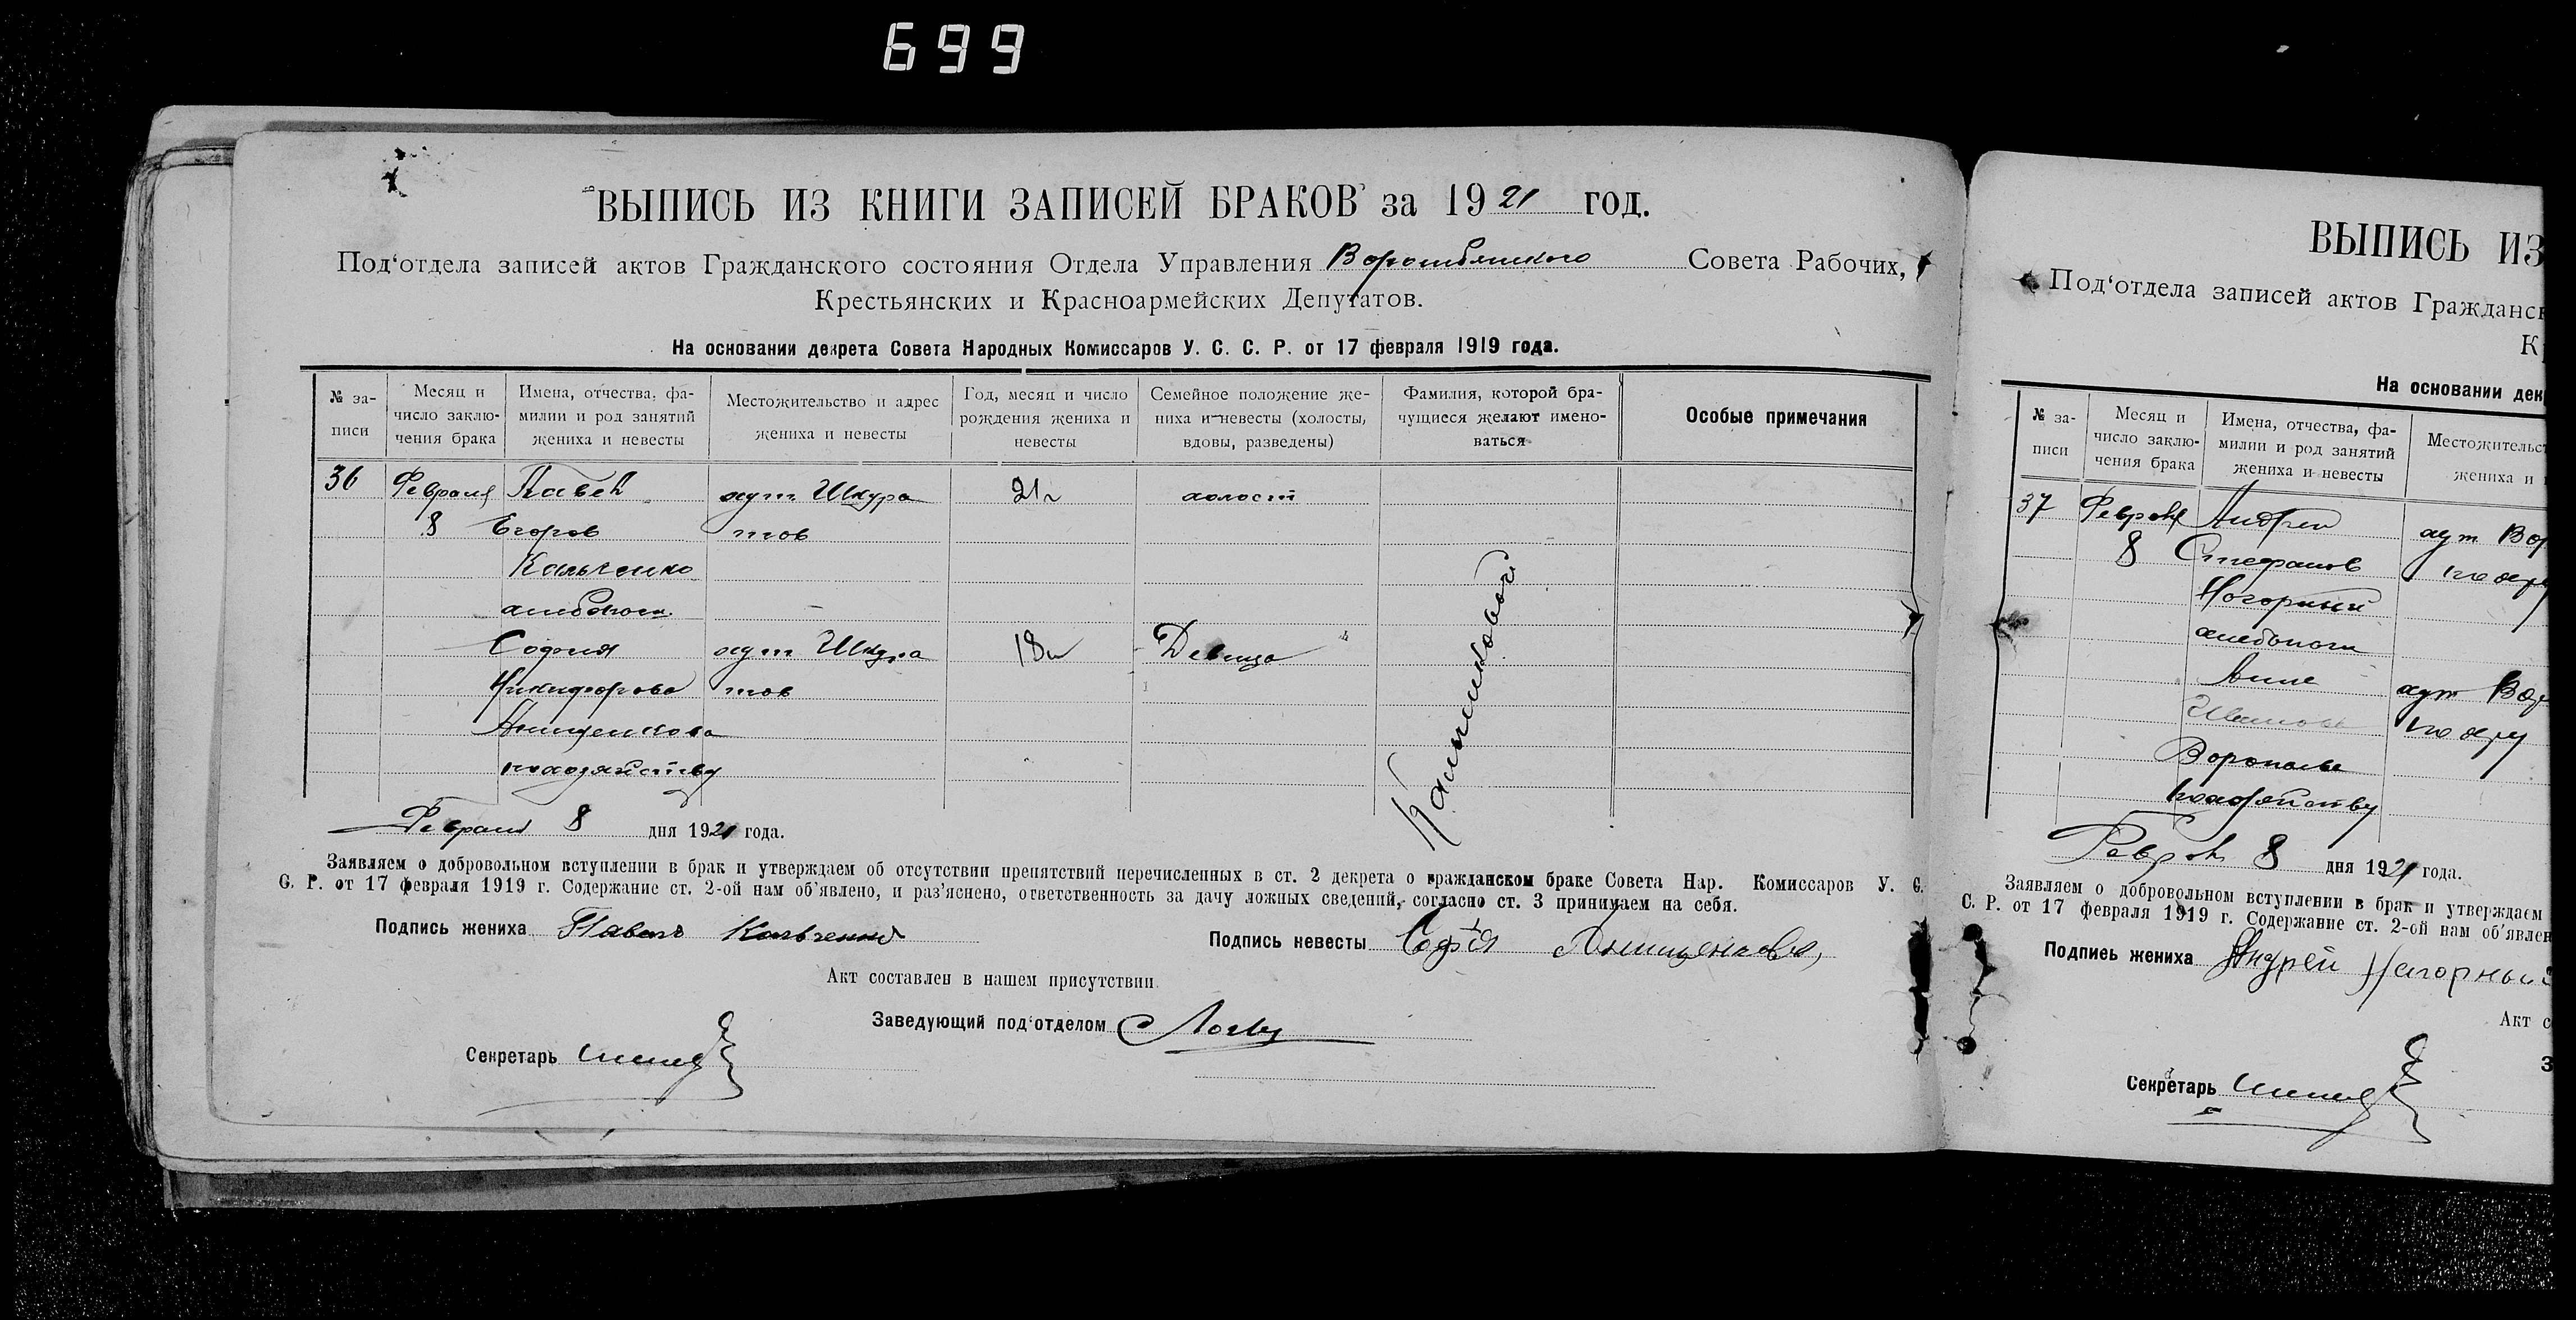 699
ВЫПИСЬ ИЗ КНИГИ ЗАПИСЕЙ БРАКОВ за 1921 год.
Под'отдела записей актов Гражданского состояния Отдела Управления Ворожбянского Совета Рабочих,
Крестьянских и Красноармейских Депутатов.
На основании декрета Совета Народных Комиссаров У. С. С. Р. от 17 февраля 1919 года.
№ записи
Месяц и число заключения брака
Имена, отчества, фамилии и род занятий жениха и невесты
Местожительство и адрес жениха и невесты
Год, месяц и число рождения жениха и невесты
Семейное положение жениха и невесты (холосты, вдовы, разведены)
Фамилия, которой брачущиеся желают именоваться
Особые примечания
36 Февраля Павел хут Шкура 21 л холост
8 Егоров тов
Кальченко
хлебопаш.
София хут Шкура 18 л Девица
Никифорова тов
Анищенкова
по хозяйству
Февраля 8 дня 1921 года.
Заявляем о добровольном вступлении в брак и утверждаем об отсутствии препятствий перечисленных в ст. 2 декрета о гражданском браке Совета Нар. Комиссаров У. С.
С. Р. от 17 февраля 1919 г. Содержание ст. 2-ой нам об'явлено, и раз'яснено, ответственность за дачу ложных сведений, согласно ст. 3 принимаем на себя.
Подпись жениха Павелъ Кальченко
Подпись невесты Софія Анищенкова,
Акт составлен в нашем присутствии
Заведующий под'отделом
Секретарь
ВЫПИСЬ ИЗ
Под'отдела записей актов Гражданск
К
На основании дек
№ записи
Месяц и число заключения брака
Имена, отчества, фамилии и род занятий жениха и невесты
Местожительст
жениха и
37 Февраля Андрей хут Вор
8 Стефанов
Нагорный
хлебопаш
Анна хут Вор
Ивановна
по хозяйству
Февраля 8 дня 1921 года.
Заявляем о добровольном вступлении в брак и утверждаем
С. Р. от 17 февраля 1919 г. Содержание ст. 2-ой нам об'явлен
Подпись жениха Андрей Нагорный
Акт с
З
Секретарь